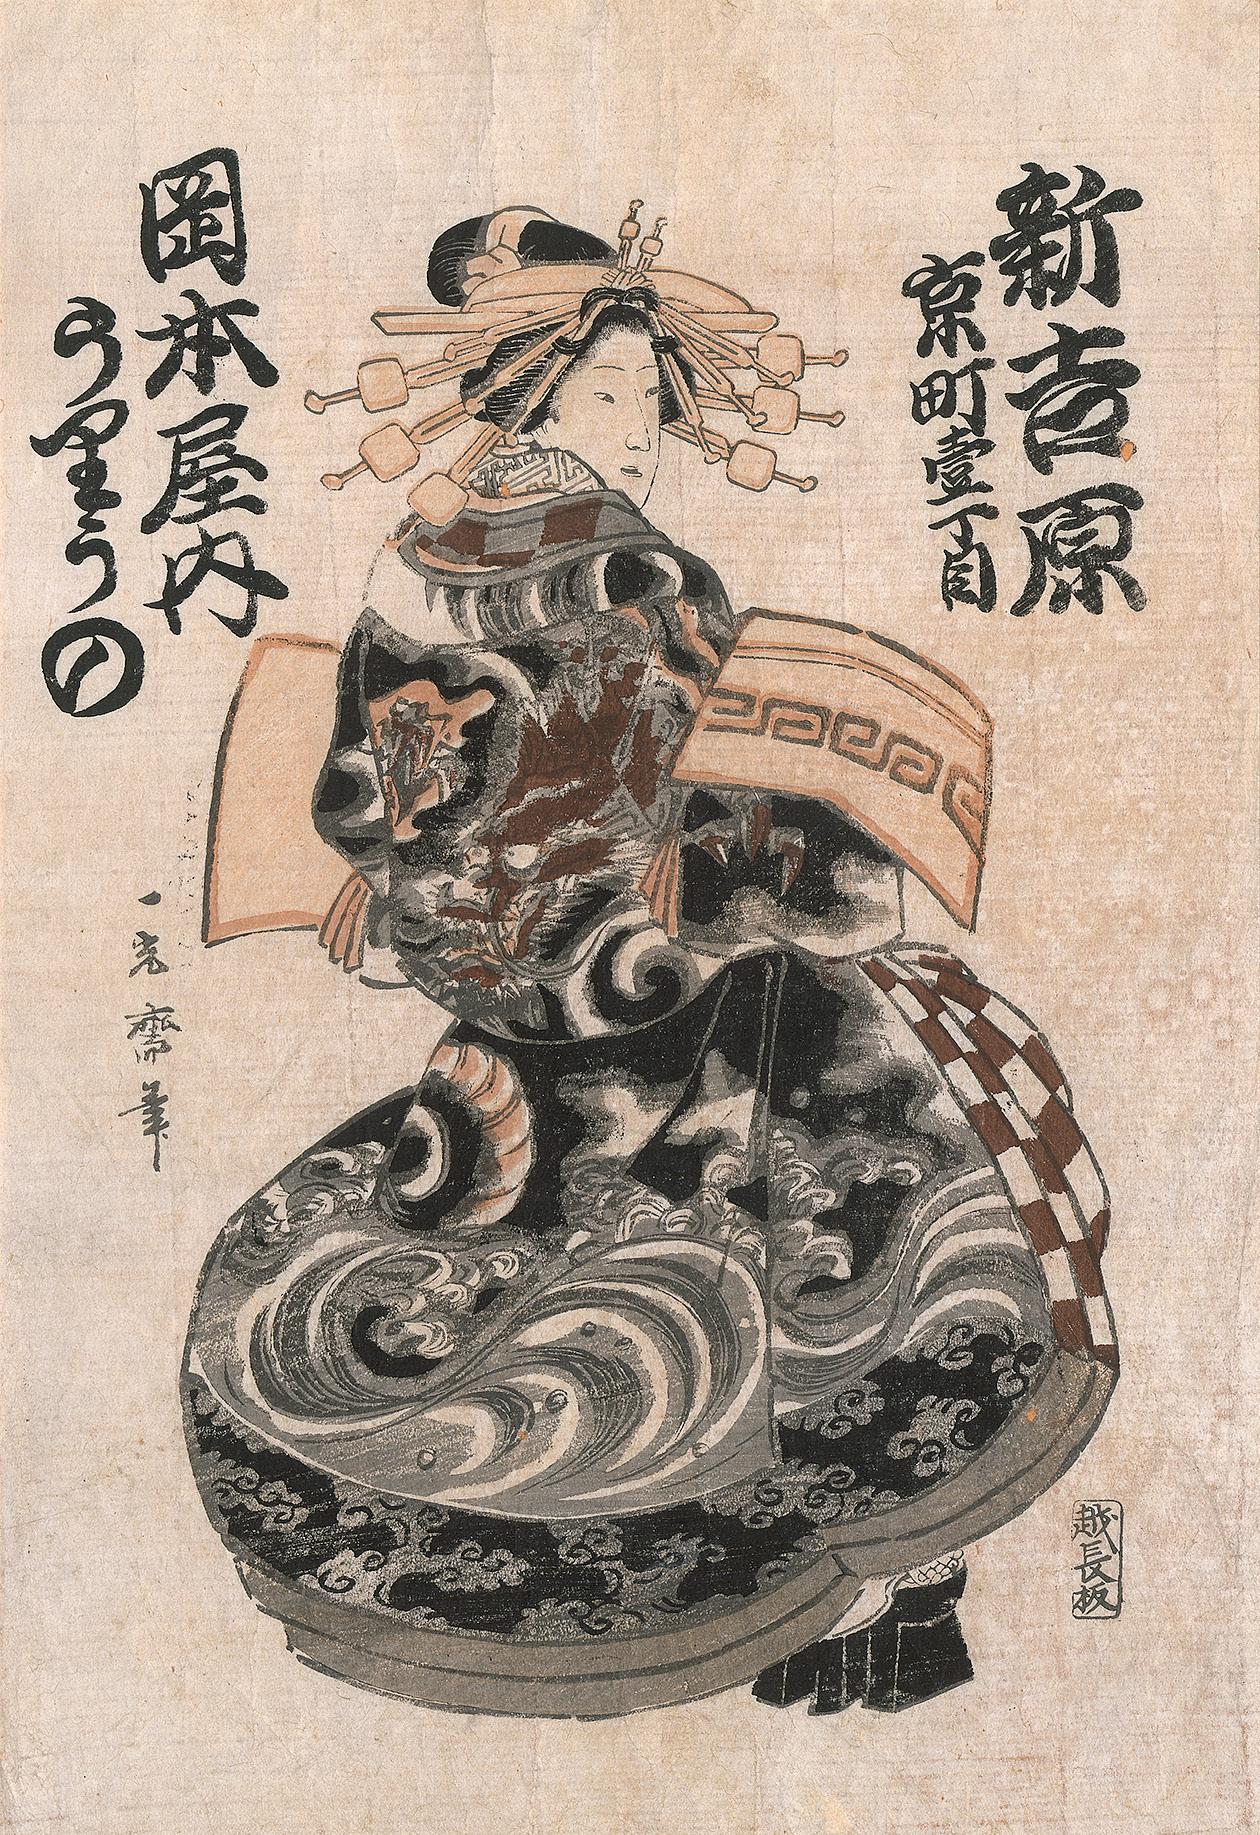 新吉原
京町壹丁目
岡本屋内
うりうの
一光齋筆
越長板